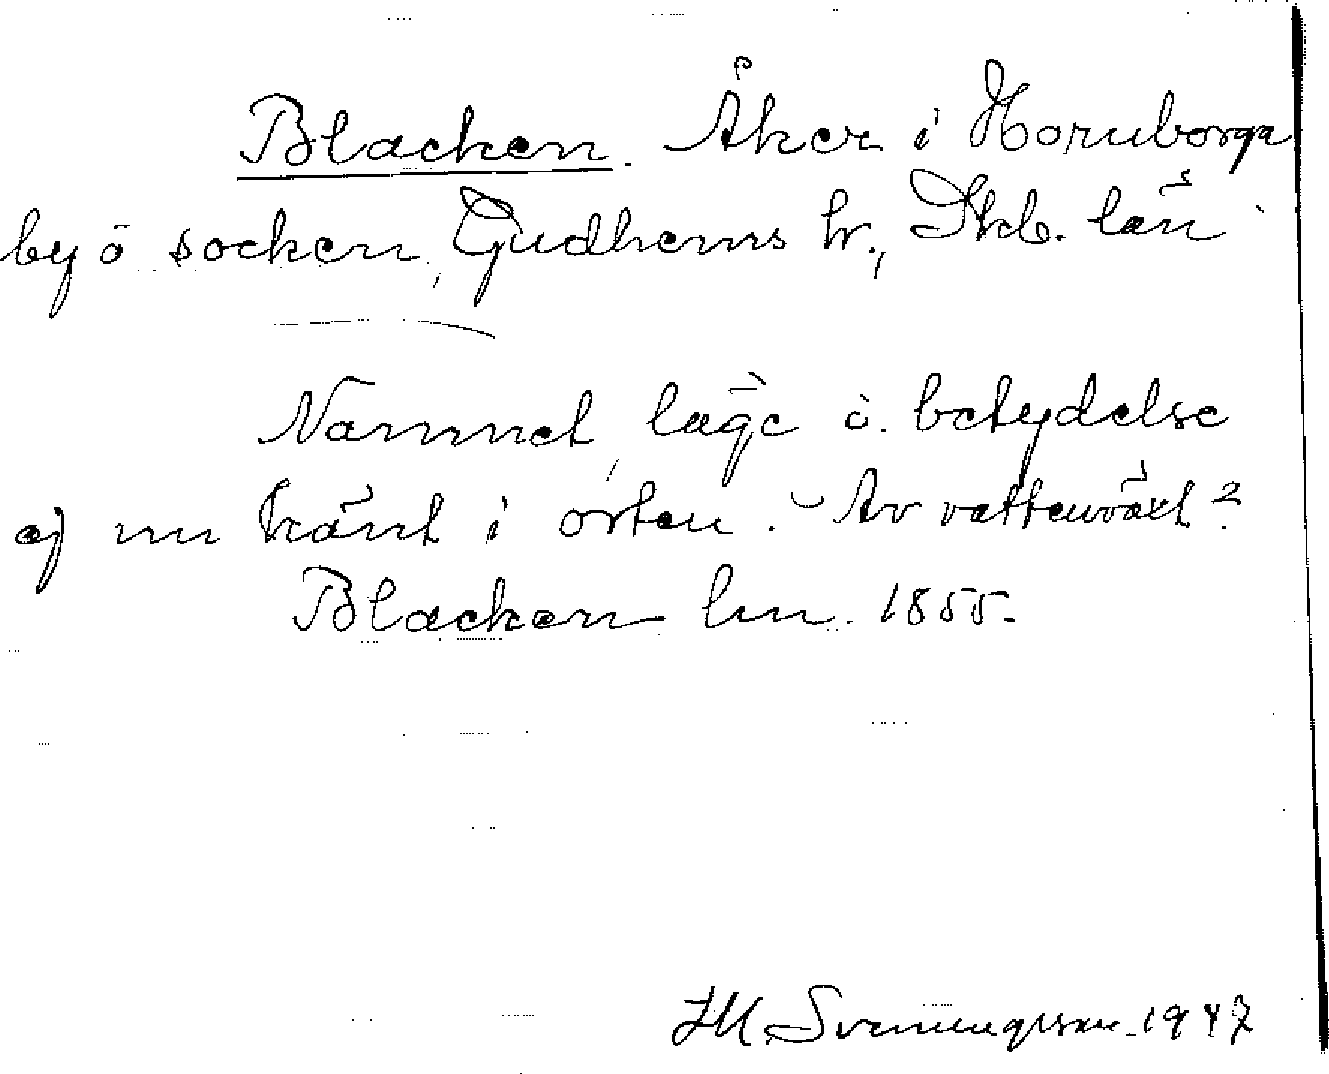 Blacken. Åker i Hornborga
by o socken, Gudhems hr., Skb. län
Namnet, läge o. betydelse
ej nu känt i orten. - Av vattenväxt?
Blacken lm. 1855.
Svenungsson 1947